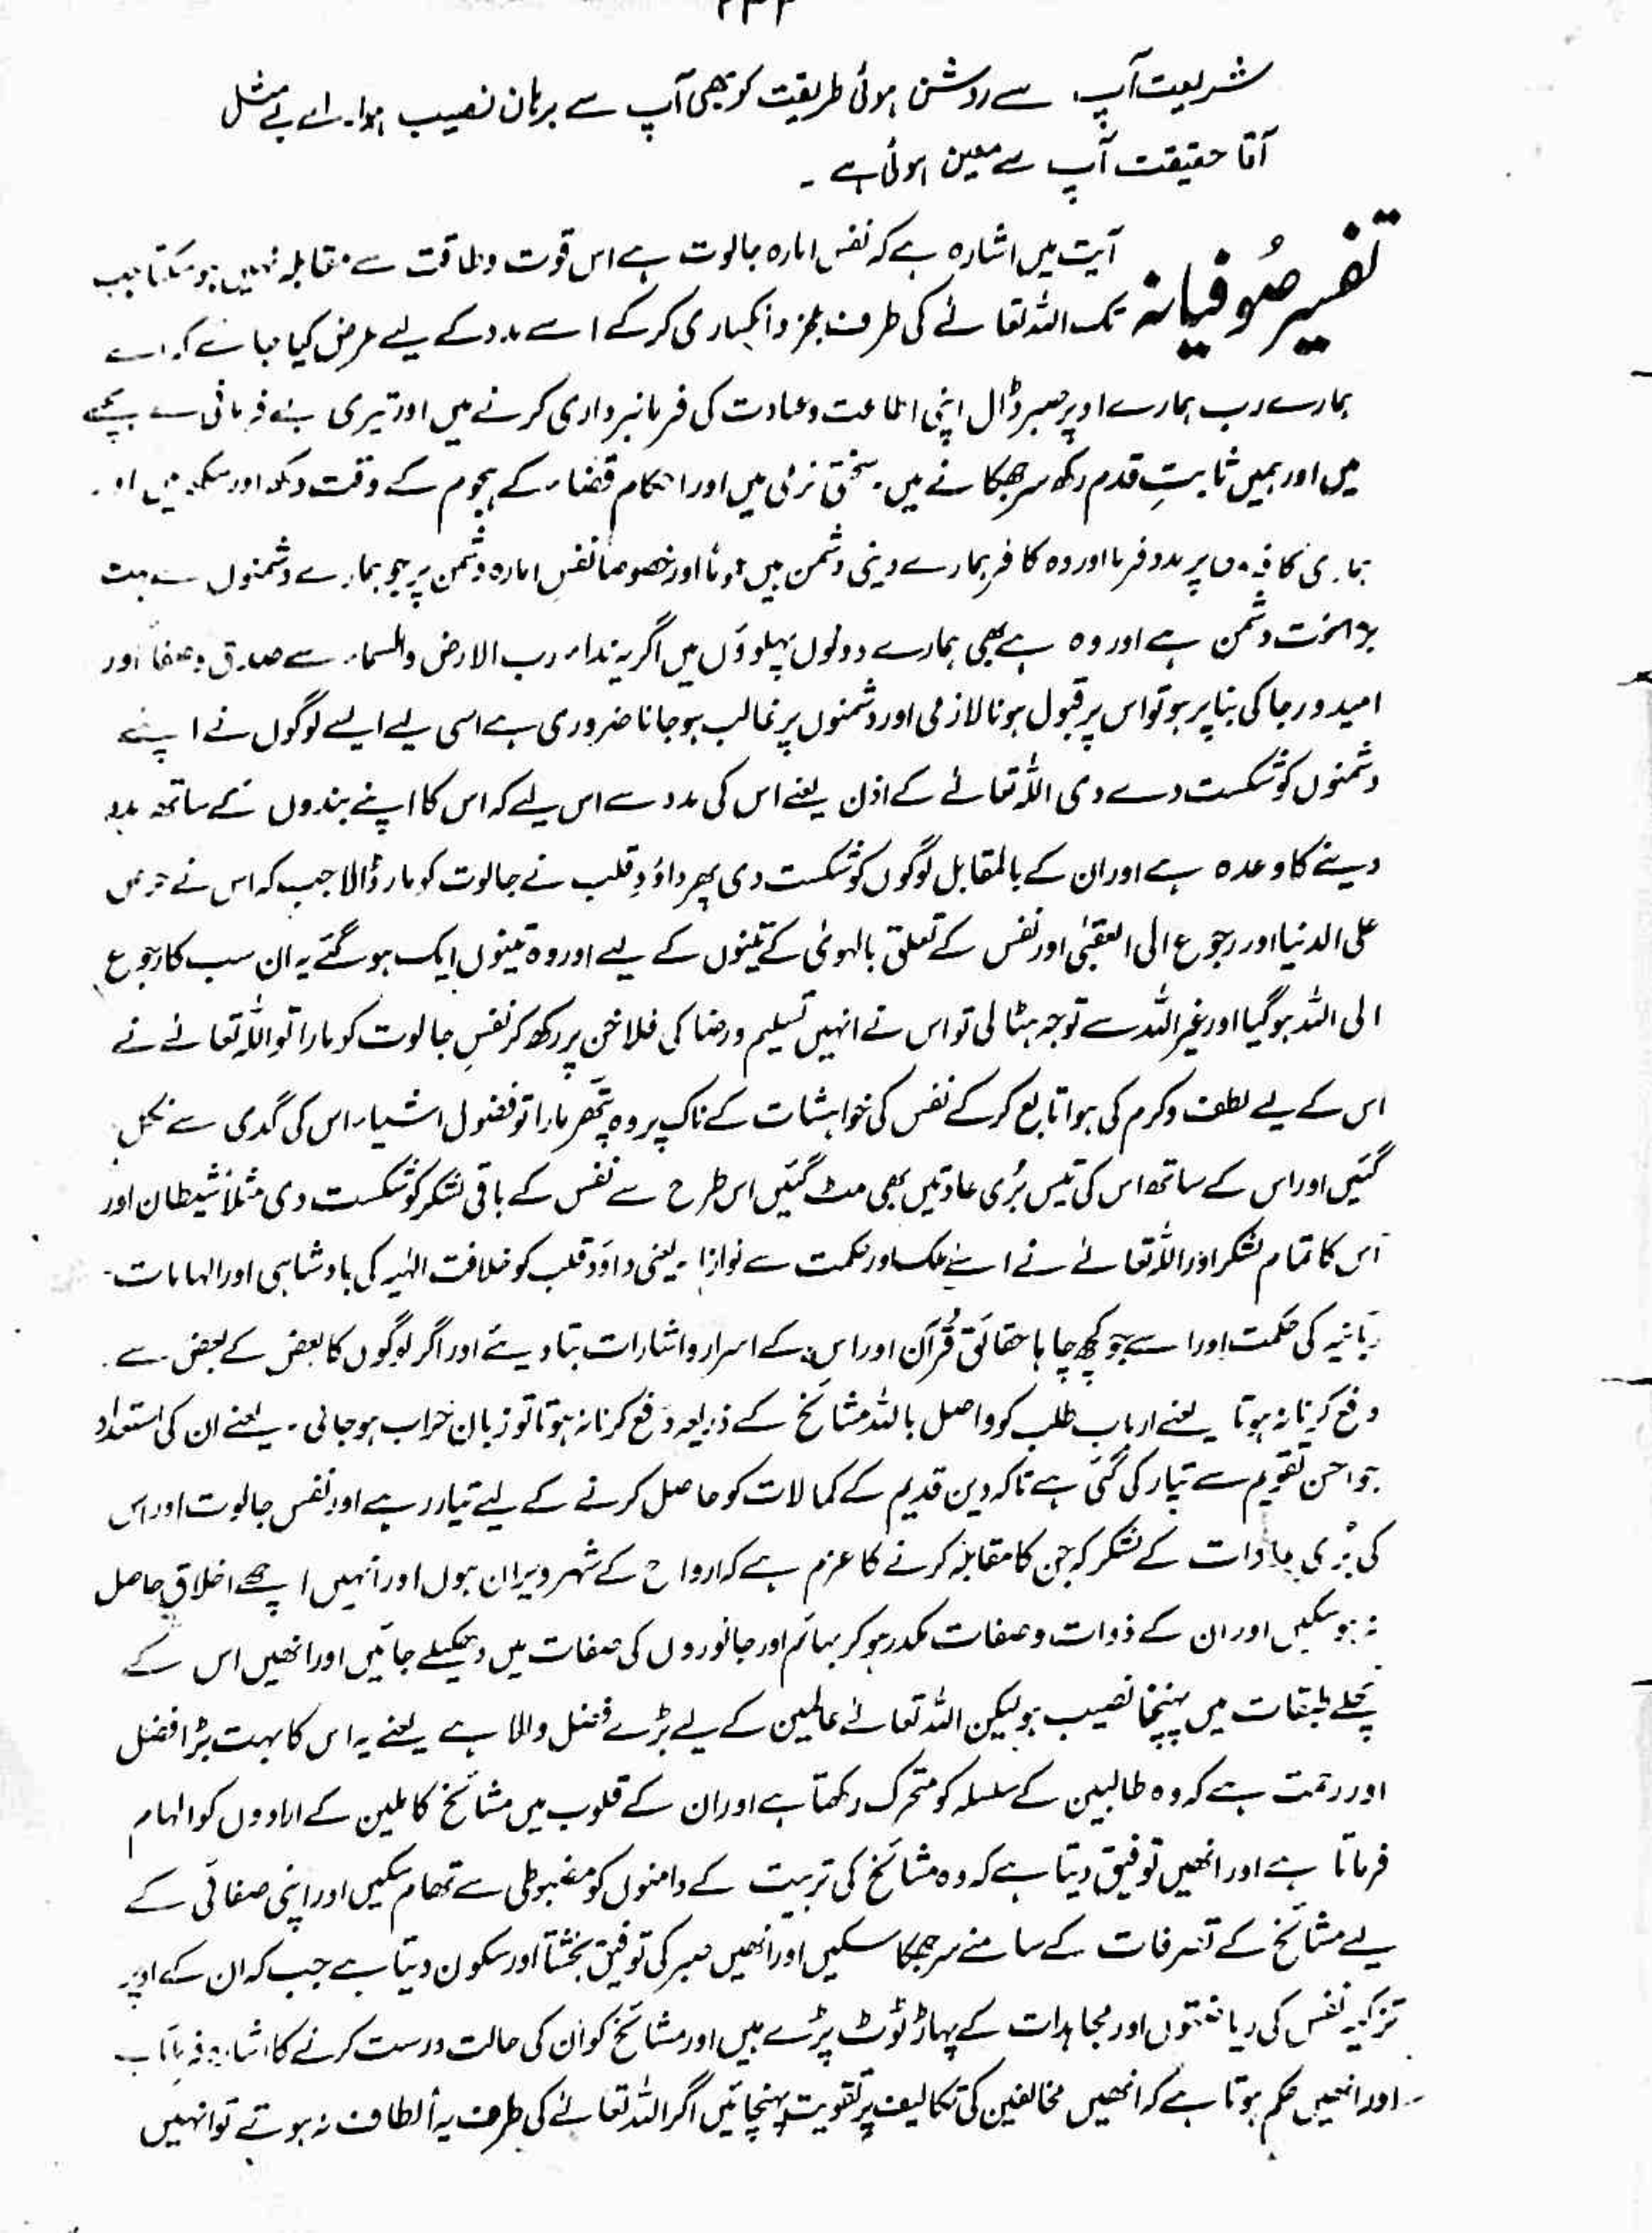 شریعت آپ سے روشن ہوئی طریقت کو بھی آپ سے برہان نصیب ہوا۔ اے بے مثل
آقا حقیقت آپ سے معین ہوئی ہے ۔
تفسیر صُوفیانہ
آیت میں اشارہ ہے کہ نفس امارہ جالوت ہے اس قوت و طاقت سے مقابلہ نہیں ہو سکتا جب
تک اللہ تعالےٰ کی طرف عجز و انکساری کر کے اسے مدد کے لیے عرض کیا جائے کہ اے
ہمارے رب ہمارے اوپر صبر ڈال اپنی اطاعت و عبادت کی فرمانبرداری کرنے میں اور تیری بے فرمانی سے بچنے
میں اور ہمیں ثابتِ قدم رکھ سر جھکانے میں۔ سختی نرمی میں اور احکام قضاء کے ہجوم کے وقت دکھ اور سکھ میں اور
ہماری کافروں پر مدد فرما اور وہ کافر ہمارے دینی دشمن ہیں عموماً اور خصوصاً نفسِ امارہ دشمن پر جو ہمارے دشمنوں سے بہت
بڑا سخت دشمن ہے اور وہ ہے بھی ہمارے دونوں پہلوؤں میں اگر یہ نداء رب الارض والسماء سے صدق و صفا اور
امید و رجا کی بنا پر ہو تو اس پر قبول ہونا لازمی اور دشمنوں پر غالب ہو جانا ضروری ہے اسی لیے ایسے لوگوں نے اپنے
دشمنوں کو شکست دے دی اللہ تعالےٰ کے اذن یعنے اس کی مدد سے اس لیے کہ اس کا اپنے بندوں کے ساتھ مدد
دینے کا وعدہ ہے اور ان کے بالمقابل لوگوں کو شکست دی پھر داؤدِ قلب نے جالوت کو مار ڈالا جب کہ اس نے حرص
علی الدنیا اور رجوع الی العقبیٰ اور نفس کے تعلق بالہویٰ کے تینوں کے لیے اور وہ تینوں ایک ہو گئے یہ ان سب کا رجوع
الی اللہ ہو گیا اور غیر اللہ سے توجہ ہٹا لی تو اس نے انہیں تسلیم و رضا کی فلاخن پر رکھ کر نفسِ جالوت کو مارا تو اللہ تعالےٰ نے
اس کے لیے لطف و کرم کی ہوا تابع کر کے نفس کی خواہشات کے ناک پر وہ پتھر مارا تو فضول اشیاء اس کی گدی سے نکل
گئیں اور اس کے ساتھ اس کی تیس بُری عادتیں بھی مٹ گئیں اس طرح سے نفس کے باقی لشکر کو شکست دی مثلاً شیطان اور
اس کا تمام لشکر اور اللہ تعالےٰ نے اسے ملک اور حکمت سے نوازا۔ یعنی داؤد قلب کو خلافت الٰہیہ کی بادشاہی اور الہامات
ربّانیہ کی حکمت اور اسے جو کچھ چاہا حقائق قُرآن اور اس کے اسرار و اشارات بتا دیئے اور اگر لوگوں کا بعض کے بعض سے
دفع کرنا نہ ہوتا یعنے ارباب طلب کو واصل باللہ مشائخ کے ذریعہ دفع کرنا نہ ہوتا تو زبان خراب ہو جاتی۔ یعنے ان کی استعداد
جو احسن تقویم سے تیار کی گئی ہے تاکہ دین قدیم کے کمالات کو حاصل کرنے کے لیے تیار رہے اور نفس جالوت اور اس
کی بُری عادات کے لشکر کہ جن کا مقابلہ کرنے کا عزم ہے کہ ارواح کے شہر ویران ہوں اور انہیں اچھے اخلاق حاصل
نہ ہو سکیں اور ان کے ذوات و صفات مکدر ہو کر بہائم اور جانوروں کی صفات میں دھکیلے جائیں اور انھیں اس کے
نچلے طبقات میں پہنچنا نصیب ہو لیکن اللہ تعالےٰ عالمین کے لیے بڑے فضل والا ہے یعنے یہ اس کا بہت بڑا فضل
اور رحمت ہے کہ وہ طالبین کے سلسلہ کو متحرک رکھتا ہے اور ان کے قلوب میں مشائخ کاملین کے ارادوں کو الہام
فرماتا ہے اور انھیں توفیق دیتا ہے کہ وہ مشائخ کی تربیت کے دامنوں کو مضبوطی سے تھام سکیں اور اپنی صفائی کے
لیے مشائخ کے تصرفات کے سامنے سر جھکا سکیں اور انھیں صبر کی توفیق بخشتا اور سکون دیتا ہے جب کہ ان کے اوپر
تزکیہ نفس کی ریاضتوں اور مجاہدات کے پہاڑ ٹوٹ پڑے ہیں اور مشائخ کو ان کی حالت درست کرنے کا اشارہ فرماتا ہے
اور انھیں حکم ہوتا ہے کہ انھیں مخالفین کی تکالیف پر تقویت پہنچائیں اگر اللہ تعالےٰ کی طرف یہ الطاف نہ ہوتے تو انہیں